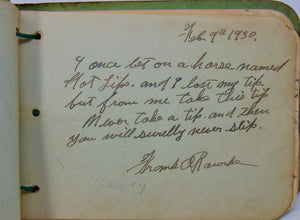 Feb. 9th 1930.
I once bet on a horse named
Hot Lips. and I lost my tip,
but from me take this tip
Never take a tip. and then
You will surelly never slip.
O'Rourke